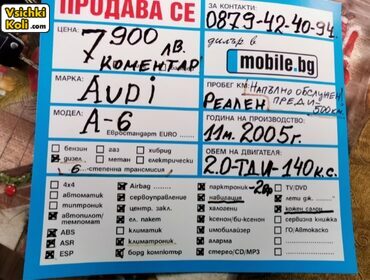 Vsichki
Koli.com
ПРОДАВА СЕ
ЗА КОНТАКТИ:
0879-42-40-94
дилър в
mobile.bg
ЦЕНА:
7900 лв.
КОМЕНТАР
МАРКА:
AUDI
МОДЕЛ:
A-6
Евростандарт EURO
ПРОБЕГ КМ: НАПЪЛНО ОБСЛУЖЕН
РЕАЛЕН ПРЕДИ 500км.
ГОДИНА НА ПРОИЗВОДСТВО:
11м. 2005г.
ОБЕМ НА ДВИГАТЕЛЯ:
2.0-ТДИ-140к.с.
бензин газ хибрид
дизел метан електрически
6 -степенна трансмисия
4x4
автоматик
типтроник
автопилот/
темпомат
ABS
ASR
ESP
Airbag
сервоуправление
центр. закл.
ел. пакет
климатик
климатроник
борд компютър
парктроник -2бр
навигация
халогени
ксенон/би-ксенон
имобилайзер
аларма
стерео/CD/MP3
TV/DVD
лети дж.
кожен салон
сервизна книжка
ГО/Автокаско